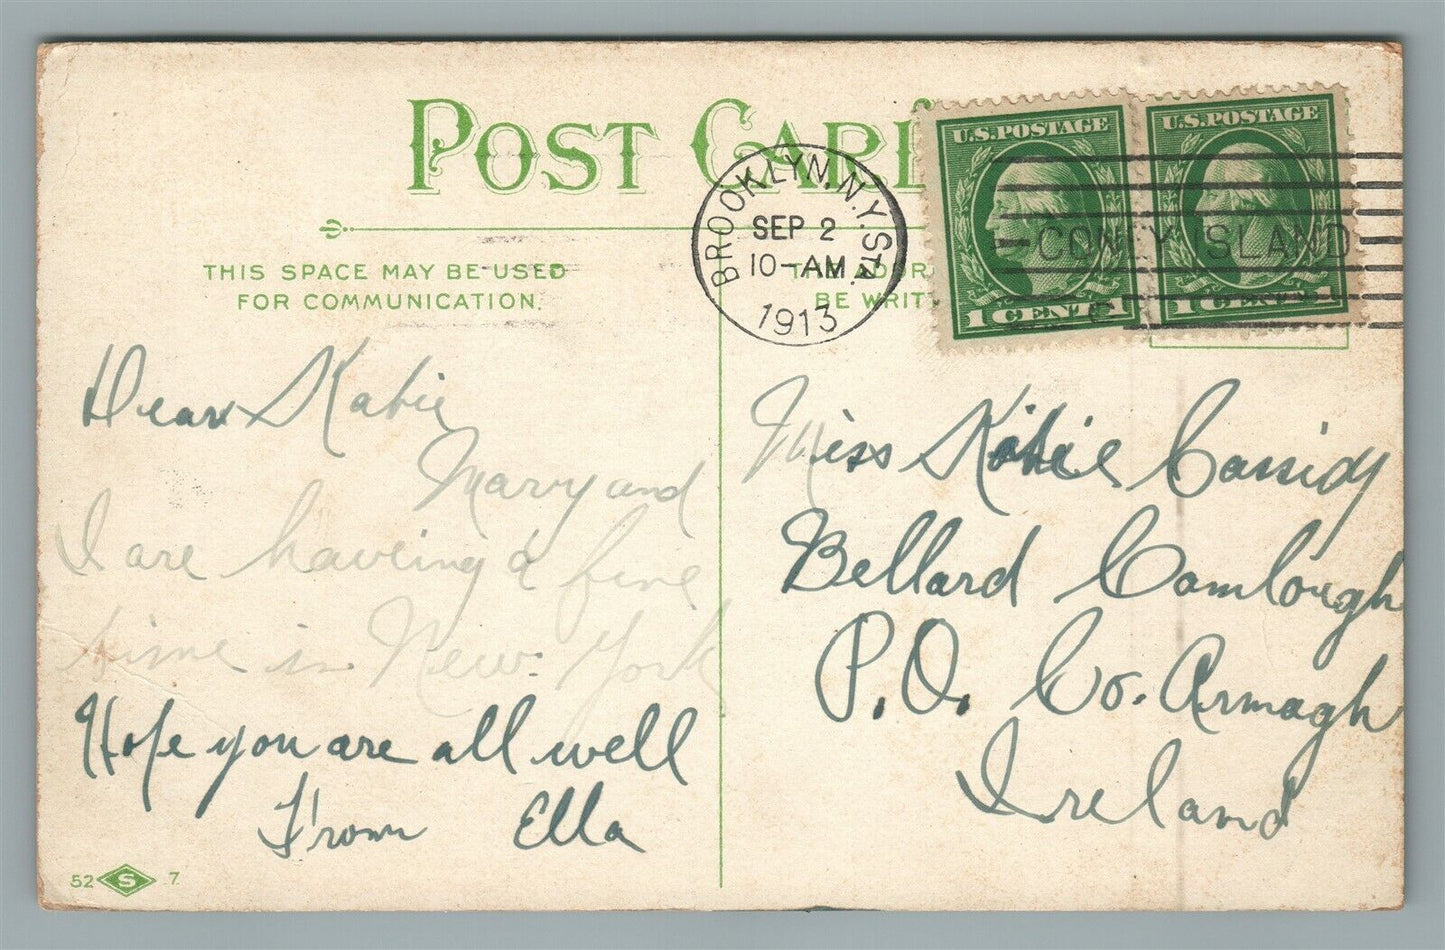 POST CARD
THIS SPACE MAY BE USED
FOR COMMUNICATION.
BE WRIT
BROOKLYN, N.Y. STA.
SEP 2
10-AM
1913
CONEY ISLAND
U.S. POSTAGE
1 CENT 1
U.S. POSTAGE
1 CENT 1
Dear Katie
Mary and
I are haveing a fine
time in New York
Hope you are all well
From Ella
Miss Katie Cassidy
Bellard Camlough
P.O. Co. Armagh
Ireland
52 S 7